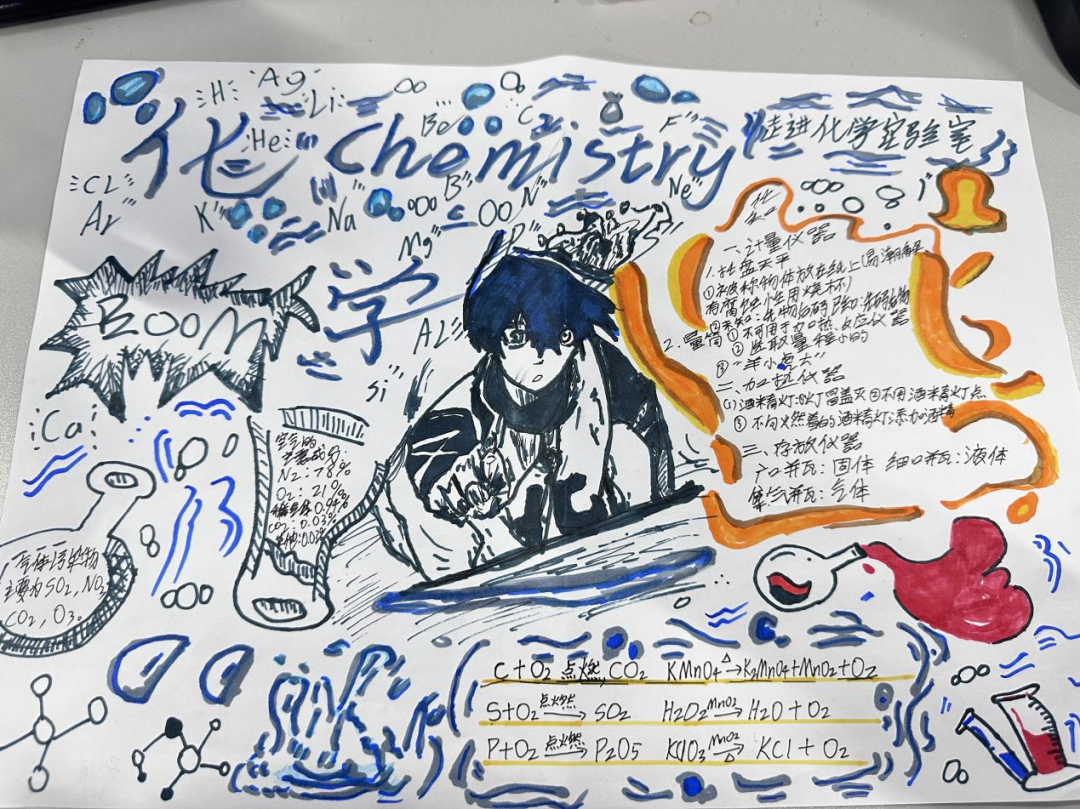 H
Ag
Li
He
Be
C
F
化 Chemistry
走进化学实验室
CL
Ar
K
Na
B
N
Ne
Mg
P
学
BOOM
AL
Si
Ca
一、计量仪器
1.托盘天平
①被称物体放在纸上(易潮解
有腐蚀性用烧杯)
2.量筒①不可用于加热、反应仪器
②选取量程小的
③
二、加热仪器
(1)酒精灯:①灯冒盖灭②不用酒精灯点
③不向燃着的酒精灯添加酒精
三、存放仪器
广口瓶:固体 细口瓶:液体
集气瓶:气体
空气的
主要成分:
N2:78%
O2:21%
稀有气体0.94%
CO2:0.03%
气体污染物
主要为SO2,NO2
CO2,O3。
C+O2 点燃 CO2 KMnO4 △→K2MnO4+MnO2+O2
S+O2 点燃→ SO2 H2O2 MnO2→ H2O+O2
P+O2 点燃→ P2O5 KClO3 MnO2→△ KCl+O2